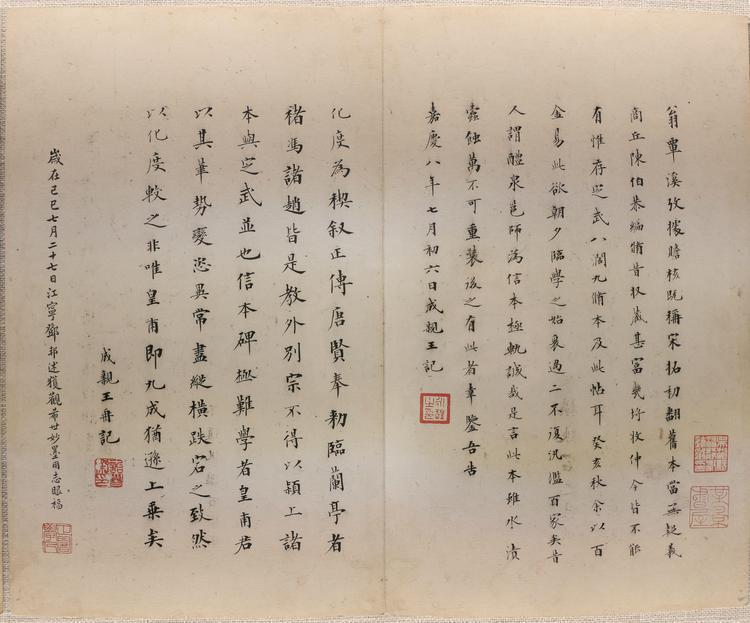 翁覃溪攷據贍核既稱宋拓初翻舊本當無疑義
商丘陳伯恭編脩昔收藏甚富幾埒牧仲今皆不能
有惟存定武八闊九脩本及此帖耳癸亥秋余以百
金易此欲朝夕臨學之始衰過二不復汎濫百家矣昔
人謂醴泉邕師為信本極軌誠哉是言此本雖水漬
蠹蝕萬不可重裝後之有此者幸鑒吾告
嘉慶八年七月初六日成親王記
化度為稧敘正傳唐賢奉勑臨蘭亭者
褚馮諸趙皆是教外別宗不得以潁上諸
本與定武並也信本碑極難學者皇甫君
以其筆勢憂恣異常盡縱橫跌宕之致然
以化度較之非唯皇甫即九成猶遜上乘矣
成親王再記
歲在己巳七月二十七日江寧鄧邦述獲觀希世妙墨同志眼福